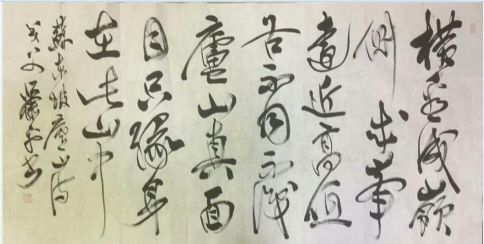 橫看成嶺
側成峯
遠近高低
各不同不識
廬山真面
目只緣身
在此山中
蘇東坡廬山詩
書